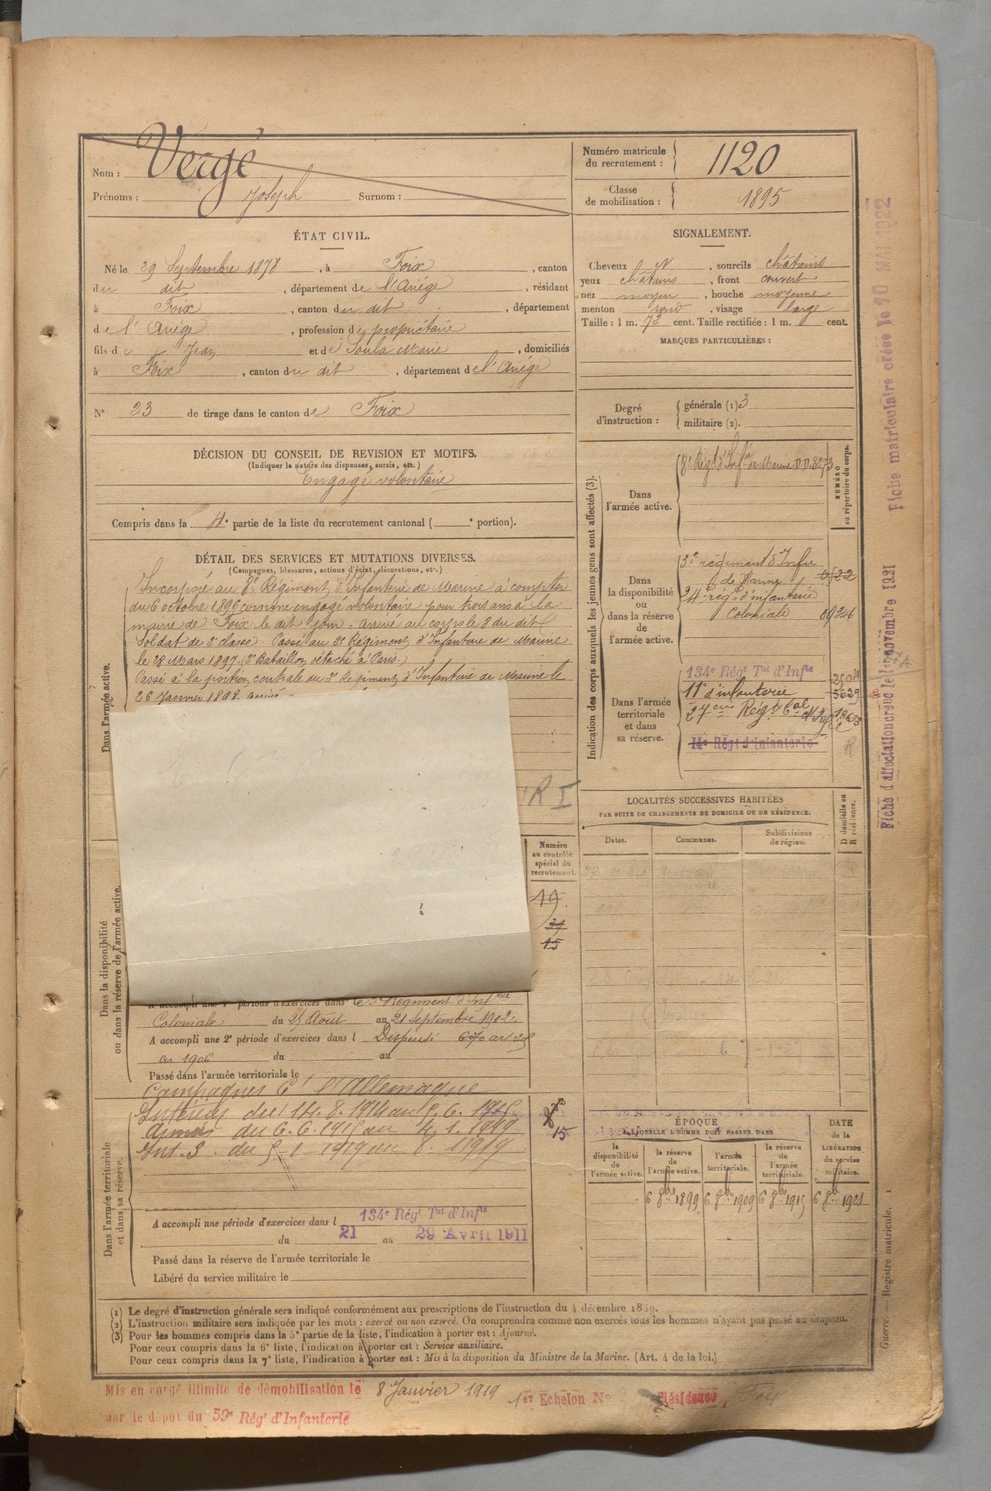 Nom : Vergé
Prénoms : Joseph Surnom :
Numéro matricule du recrutement : 1120
Classe de mobilisation : 1895
ÉTAT CIVIL.
Né le 29 Septembre 1878, à Foix, canton
du dit, département de l'Ariége, résidant
à Foix, canton du dit, département
de l'Ariége, profession de propriétaire
fils de Jean et de Soula Marie, domiciliés
à Foix, canton du dit, département de l'Ariége
N° 23 de tirage dans le canton de Foix
SIGNALEMENT.
Cheveux N, sourcils châtains
yeux châtains, front couvert
nez moyen, bouche moyenne
menton rond, visage large
Taille : 1 m. 73 cent. Taille rectifiée : 1 m. cent.
MARQUES PARTICULIÈRES :
Degré d'instruction : générale (1) 3
militaire (2).
DÉCISION DU CONSEIL DE REVISION ET MOTIFS.
(Indiquer la nature des dispenses, sursis, etc.)
Engagé volontaire
Compris dans la 4e partie de la liste du recrutement cantonal ( e portion).
DÉTAIL DES SERVICES ET MUTATIONS DIVERSES.
(Campagnes, blessures, actions d'éclat, décorations, etc.)
Dans l'armée active.
Incorporé au 8e Régiment d'Infanterie de Marine à compter
du 6 octobre 1896 comme engagé volontaire pour trois ans à la
mairie de Foix le dit jour. Arrivé au corps le 8 du dit
Soldat de 2e classe. Passé au 3e Régiment d'Infanterie de Marine
le 28 Mars 1897 Bataillon détaché à Paris.
Passé à la portion centrale du Régiment d'Infanterie de Marine le
26 Janvier 1898
R I
Indication des corps auxquels les jeunes gens sont affectés (3).
NUMÉRO au répertoire du corps.
Dans l'armée active.
8e Régt d'Infie de Marine
Dans la disponibilité ou dans la réserve de l'armée active.
3e régiment d'Infie
de Marine
24e régt d'infanterie
Coloniale
Dans l'armée territoriale et dans sa réserve.
134e Régt Tal d'Infie
11e d'infanterie
27eme Régt
14e Régt d'Infanterie
LOCALITÉS SUCCESSIVES HABITÉES
PAR SUITE DE CHANGEMENTS DE DOMICILE OU DE RÉSIDENCE.
Dates. Communes. Subdivisions de région. D domicile ou R résidence.
Numéro au contrôle spécial du recrutement.
19.
15
Dans la disponibilité ou dans la réserve de l'armée active.
A accompli une 1re période d'exercices dans le Régiment d'Infie
Coloniale du 25 Août au 21 septembre 1902.
A accompli une 2e période d'exercices dans l Dispensé
en 1906 du au
Passé dans l'armée territoriale le
Campagnes Ct l'Allemagne
Dans l'armée territoriale et dans sa réserve.
Intérieur du 14.8.1914 au 5.6.1915
Armées du 6.6.1915 au 4.1.1919
Int. S. du 5-1-1919 au 8. 1919
15
A accompli une période d'exercices dans l 134e Régt Tal d'Infie
du 21 au 29 Avril 1911
Passé dans la réserve de l'armée territoriale le
Libéré du service militaire le
ÉPOQUE
A LAQUELLE L'HOMME DOIT PASSER DANS
la disponibilité de l'armée active. la réserve de l'armée active. l'armée territoriale. la réserve de l'armée territoriale. DATE de la LIBÉRATION du service militaire.
6 8bre 1899 6 8bre 1909 6 8bre 1915 6 8bre 1921
(1) Le degré d'instruction générale sera indiqué conformément aux prescriptions de l'instruction du 4 décembre 1889.
(2) L'instruction militaire sera indiquée par les mots : exercé ou non exercé. On comprendra comme non exercés tous les hommes n'ayant pas passé au drapeau.
(3) Pour les hommes compris dans la 5e partie de la liste, l'indication à porter est : Ajourné.
Pour ceux compris dans la 6e liste, l'indication à porter est : Service auxiliaire.
Pour ceux compris dans la 7e liste, l'indication à porter est : Mis à la disposition du Ministre de la Marine. (Art. 4 de la loi.)
Mis en congé illimité de démobilisation le 8 Janvier 1919 1er Echelon N° Résidence Foix
par le dépôt du 59e Régt d'Infanterie
Fiche matriculaire créée le 10 MAI 1922
Fiche d'affectation créée le 1 novembre 1921
Guerre. — Registre matricule. 1